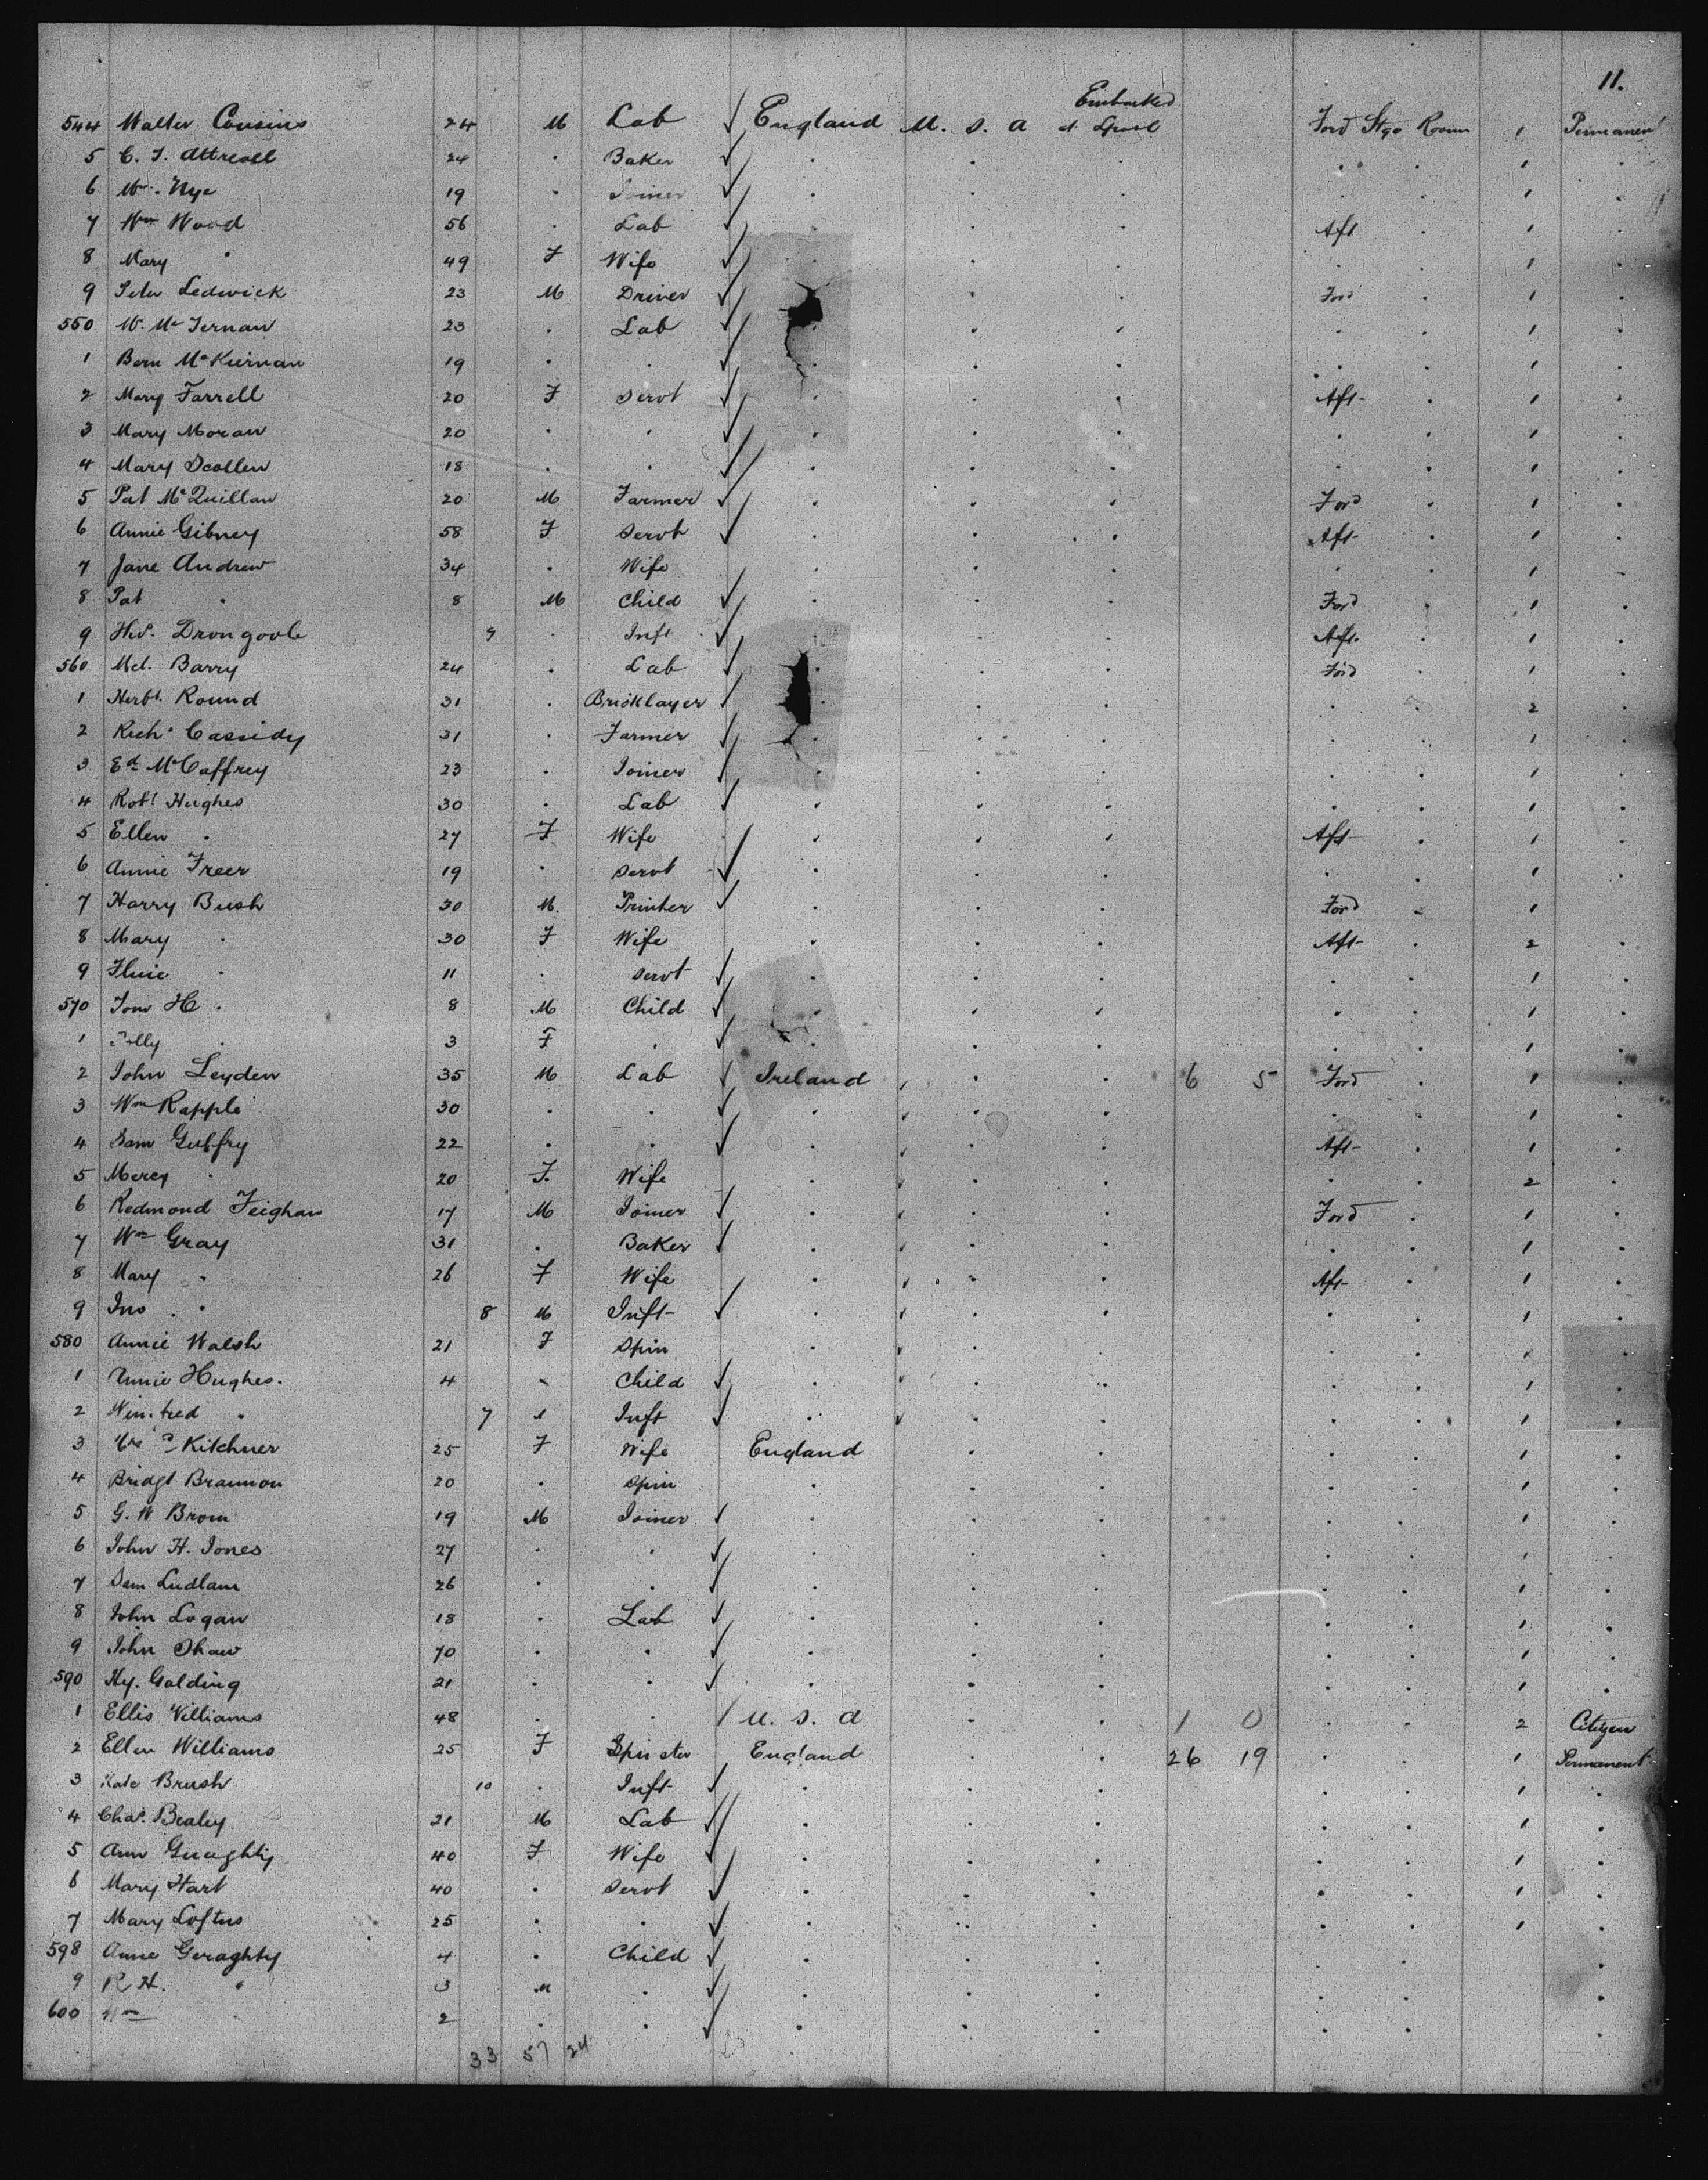 11.
Embarked
544 Walter Cousins 24 M Lab ✓ England U. S. A at Lpool Ford Stge Room 1 Permanent
5 C. J. Attreall 24 . Baker ✓ . . . . . 1 .
6 Wm. Nye 19 . Joiner ✓ . . . . . 1 .
7 Wm Wood 56 . Lab ✓ . . . Aft . 1 .
8 Mary " 49 F Wife ✓ . . . . . 1 .
9 Peter Ledwick 23 M Driver ✓ . . . Ford . 1 .
550 W. McTernan 23 . Lab ✓ . . . . . 1 .
1 Bern McKiernan 19 . . ✓ . . . . . 1 .
2 Mary Farrell 20 F Servt ✓ . . . Aft . 1 .
3 Mary Moran 20 . . ✓ . . . . . 1 .
4 Mary Scollen 18 . . ✓ . . . . . 1 .
5 Pat McQuillan 20 M Farmer ✓ . . . Ford . 1 .
6 Annie Gibney 58 F Servt ✓ . . . Aft . 1 .
7 Jane Andrew 34 . Wife . . . . . 1 .
8 Pat " 8 M Child ✓ . . . Ford . 1 .
9 Drongoole 9 . Inft ✓ . . . Aft . 1 .
560 Mcl. Barry 24 . Lab ✓ . . . Ford . 1 .
1 Herbt. Round 31 . Bricklayer ✓ . . . . 2 .
2 Rich. Cassidy 31 . Farmer ✓ . . . . . 1 .
3 Ed McCaffrey 23 . Joiner ✓ . . . . . 1 .
4 Robt Hughes 30 . Lab ✓ . . . . . 1 .
5 Ellen . 27 F Wife . . . Aft . 1 .
6 Annie Freer 19 . Servt ✓ . . . . . 1 .
7 Harry Bush 30 M. Printer ✓ . . . Ford . 1
8 Mary . 30 F Wife . . . Aft . 2 .
9 . 11 . Servt ✓ . . . . . 1 .
570 Tom H . 8 M Child ✓ . . . . . 1 .
1 Polly . 3 F . ✓ . . . . . 1 .
2 John Leyden 35 M Lab ✓ Ireland . . . 6 5 Ford . 1 .
3 Wm Rapple 30 . . ✓ . . . . . . 1 .
4 Sam Gubfry 22 . . ✓ . . . . Aft . 1 .
5 Mercy . 20 F. Wife . . . . . . 2 .
6 Redmond Feighan 17 M Joiner ✓ . . . . Ford . 1 .
7 Wm Gray 31 . Baker ✓ . . . . . . 1 .
8 Mary . 26 F Wife . . . . Aft . 1 .
9 Jno . . 8 M Inft ✓ . . . . . . 1 .
580 Annie Walsh 21 F Spin . . . . . . 1 .
1 Annie Hughes. 4 . Child ✓ . . . . . . 1 .
2 Winifred " 7 . Inft ✓ . . . . . . 1 .
3 Kitchner 25 F Wife England . . . . 1 .
4 Bridgt Brannon 20 . Spin . . . . . 1 .
5 G. W. Brom 19 M Joiner ✓ . . . . . 1 .
6 John H. Jones 27 . . ✓ . . . . . 1 .
7 Sam Ludlam 26 . . ✓ . . . . . 1 .
8 John Logan 18 . Lab ✓ . . . . . 1 .
9 John Shaw 70 . . ✓ . . . . . 1 .
590 Hy. Golding 21 . . ✓ . . . . . 1 .
1 Ellis Williams 48 . . / U. S. A . . 1 0 . . 2 Citizen
2 Ellen Williams 25 F Spinster England . . 26 19 . . 1 Permanent
3 Kate Brush 10 . Inft ✓ . . . . . 1 .
4 Chas. Bealey 21 M Lab ✓ . . . . . 1 .
5 Ann Geraghty 40 F Wife ✓ . . . . . 1 .
6 Mary Hart 40 . Servt ✓ . . . . . 1 .
7 Mary Loftus 25 . . ✓ . . . . . 1 .
598 Anne Geraghty 4 . Child ✓ . . . . . .
9 R H. " 3 M . ✓ . . . . . .
600 Wm 2 . . ✓ . . . . . .
33 57 24